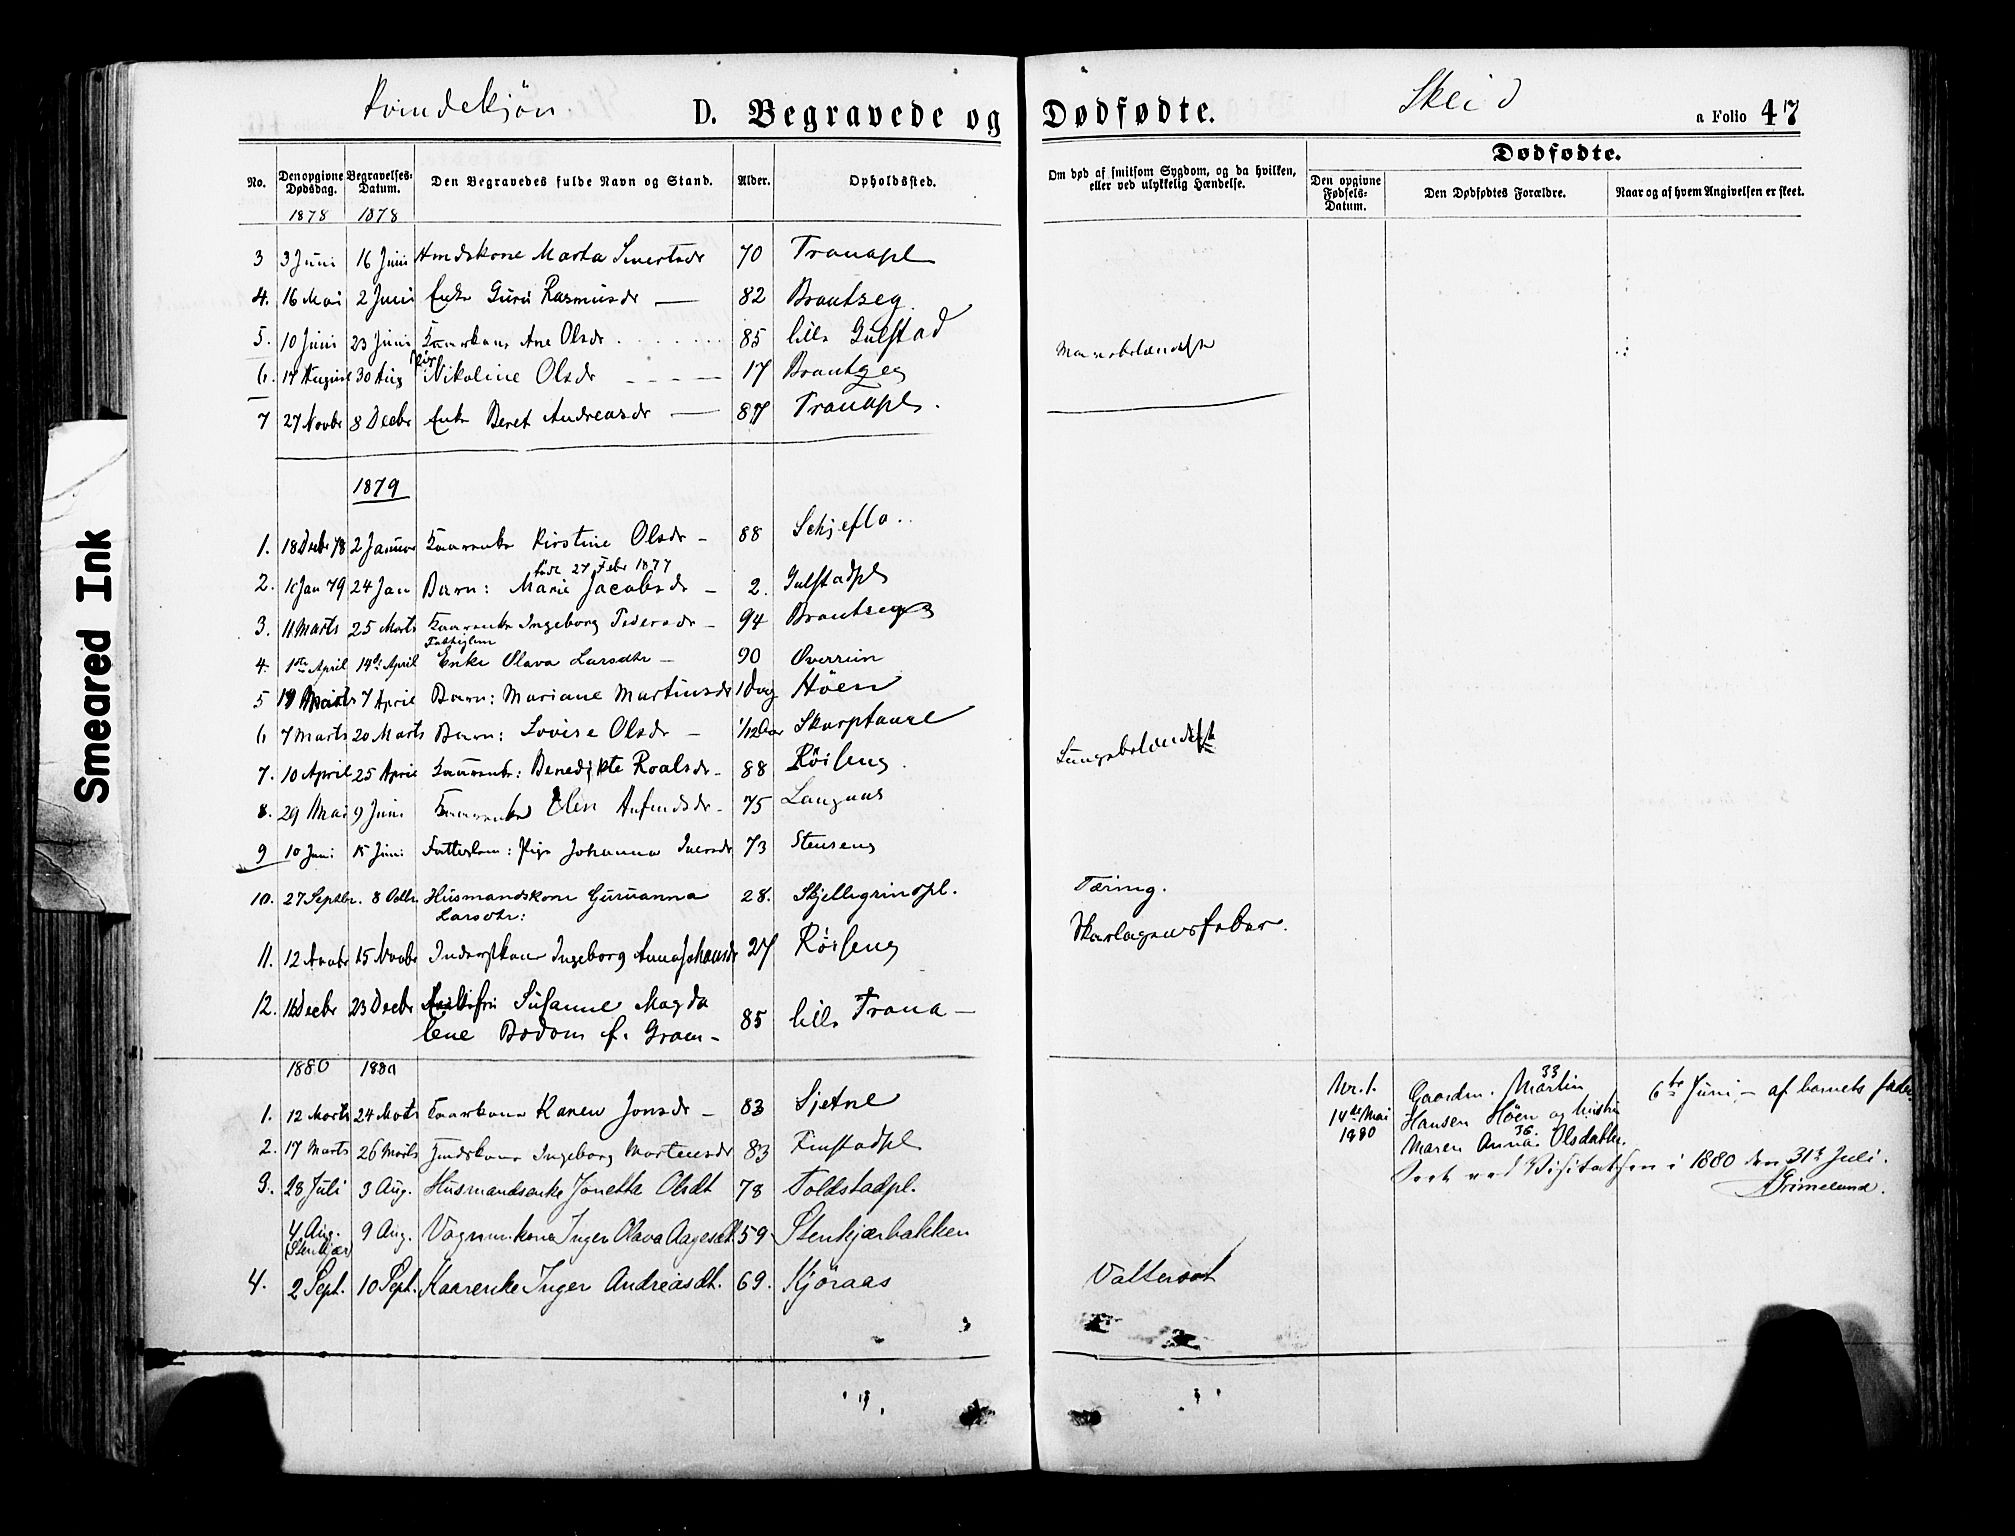 Kvindekjön
D. Begravede og
No.
Den opgivne Dødsdag.
Begravelses-Datum.
Den Begravedes fulde Navn og Stand.
Alder.
Opholdssted.
1878 1878
3 3 Juni 16 Juni Marta 70 Tranapl
4. 16 Mai 2 Juni Enke Guru Rasmusdr — 82 Brautseg
5. 10 Juni 23 Juni Kaarkone Ane Olsdr 85 lille Gulstad
6. 17 August 30 Aug Nikoline Olsdr 17 Brautseg
7 27 Novbr 8 Decbr Enke Beret Andreasdr — 87 Tranapl.
1879
1. 18 Decbr 78 2 Januar Kaarenke Kirstine Olsdr – 88 Schjeflo
född 27 Febr 1877
2. Jan 79 24 Jan Barn: Marie Jacobsdr – 2. Gulstadpl
3. 11 Marts 25 Marts Kaarenke Ingeborg Pedersdr – 94 Brautseg
Fattiglem
4. 1ste April 14de April Enke Olava Larsdtr – 90 Överrein
5 Marts 7 April Barn: Mariane Martinsdr 1 Dag Höen
6 7 Marts 20 Marts Barn: Lovise Olsdr – 1/12 Aar Skarptaure
7. 10 April 25 April Kaarenk: Benedikte Roalsdr – 88 Röiseng
8. 29 Mai 9 Juni Kaarenke Elen Anfindsdr – 75 Langnes
9 10 Juni 15 Juni Fattiglem: Pige Johanna Iversdr 73 Stenseng
10. 27 Septbr. 8 Octbr. Husmandskone Guruanna 28. Skjellegrindpl.
Larsdtr:
11. 12 Novbr 15 Novbr Inderstkone Ingeborg Anna Johansdr 27 Röiseng
12. 16 Decbr 23 Decbr Susanne Magda
lene Bodom f. Gram – 85 lille Trana –
1880 1880
1. 12 Marts 24 Marts Kaarkone Karen Jonsdr – 83 Sjetne
2. 17 Marts 26 Marts Ingeborg Mortensdr 83 Finstadpl
3. 28 Juli 3 Aug. Husmandsenke Jonetta Olsdt 78 Foldstadpl.
4 Aug. 9 Aug. Vognmkone Inger Olava Aagesdt 59 Stenkjærbakken
(Stenkjær)
4. 2 Sept. 10 Sept. Kaarenke Inger Andreasdt. 69. Kjöraas
Skei d
Dødfødte.
a Folio 47
Om død af smitsom Sygdom, og da hvilken, eller ved ulykkelig Hændelse.
Dødfødte.
Den opgivne Fødsels-Datum.
Den Dødfødtes Forældre.
Naar og af hvem Angivelsen er skeet.
Mavebetændelse
Lungebetændelse
Tæring.
Skarlagensfeber.
Nr. 1.
14de Mai
1880
33
Gaardm. Martin
Hansen Höen og hustru
36.
Maren Anna Olsdatter.
6te Juni – af barnets fader
Seet ved Visitatsen i 1880 den 31te Juli.
Grimelund.
Vattersot
Smeared Ink